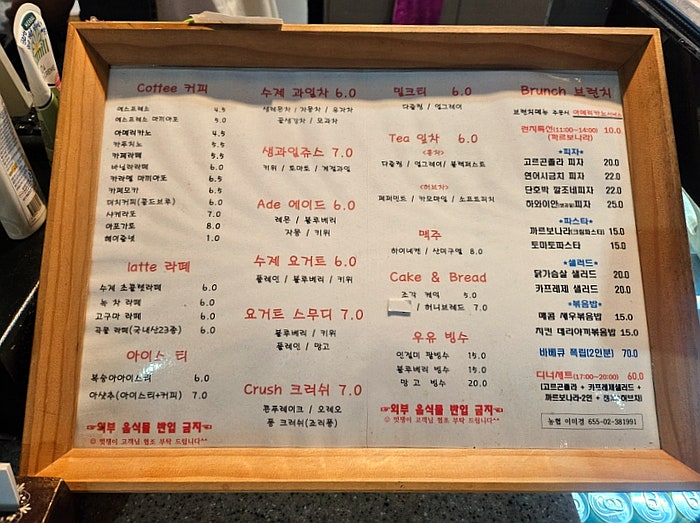 Coffee 커피
에스프레소 4.5
에스프레소 마끼아또 5.0
아메리카노 4.5
카푸치노 5.5
카페라떼 5.5
바닐라라떼 6.0
카라멜 마끼아또 6.5
카페모카 6.5
더치커피(콜드브루) 6.0
샤케라또 7.0
아포가토 8.0
헤이즐넛 1.0
latte 라떼
수제 초콜렛라떼 6.0
녹 차 라떼 6.0
고구마 라떼 6.0
곡물 라떼(국내산23종) 6.0
아이스 티
복숭아아이스티 6.0
아샷추(아이스티+커피) 7.0
☞외부 음식물 반입 금지☜
☺ 멋쟁이 고객님 협조 부탁 드립니다^^
수제 과일차 6.0
생레몬차 / 자몽차 / 유자차
꿀생강차 / 모과차
생과일쥬스 7.0
키위 / 토마토 / 계절과일
Ade 에이드 6.0
레몬 / 블루베리
자몽 / 키위
수제 요거트 6.0
플레인 / 블루베리 / 키위
요거트 스무디 7.0
블루베리 / 키위
플레인 / 망고
Crush 크러쉬 7.0
콘푸레이크 / 오레오
퐁 크러쉬(조리퐁)
밀크티 6.0
다즐링 / 얼그레이
Tea 잎차 6.0
<홍차>
다즐링 / 얼그레이/ 블랙퍼스트
<허브차>
페퍼민트 / 카모마일 / 소프트피치
맥주
하이네켄 / 산미구엘 8.0
Cake & Bread
조각 케익 5.0
/ 허니브레드 7.0
우유 빙수
인절미 팥빙수 15.0
블루베리 빙수 15.0
망 고 빙수 20.0
☞외부 음식물 반입 금지☜
☺ 멋쟁이 고객님 협조 부탁 드립니다^^
Brunch 브런치
브런치메뉴 주문시 아메리카노서비스
런치특선(11:00~14:00) 10.0
(까르보나라)
★피자★
고르곤졸라 피자 20.0
연어시금치 피자 22.0
단호박 깔조네피자 22.0
하와이안(생과일)피자 25.0
★파스타★
까르보나라(크림파스타) 15.0
토마토파스타 15.0
★샐러드★
닭가슴살 샐러드 20.0
카프레제 샐러드 20.0
★볶음밥★
매콤 새우볶음밥 15.0
치킨 데리야끼볶음밥 15.0
바베큐 폭립(2인분) 70.0
디너세트(17:00~20:00) 60.0
(고르곤졸라 + 카프레제샐러드 +
까르보나라-2인 + 허브차)
농협 이미경 655-02-381991